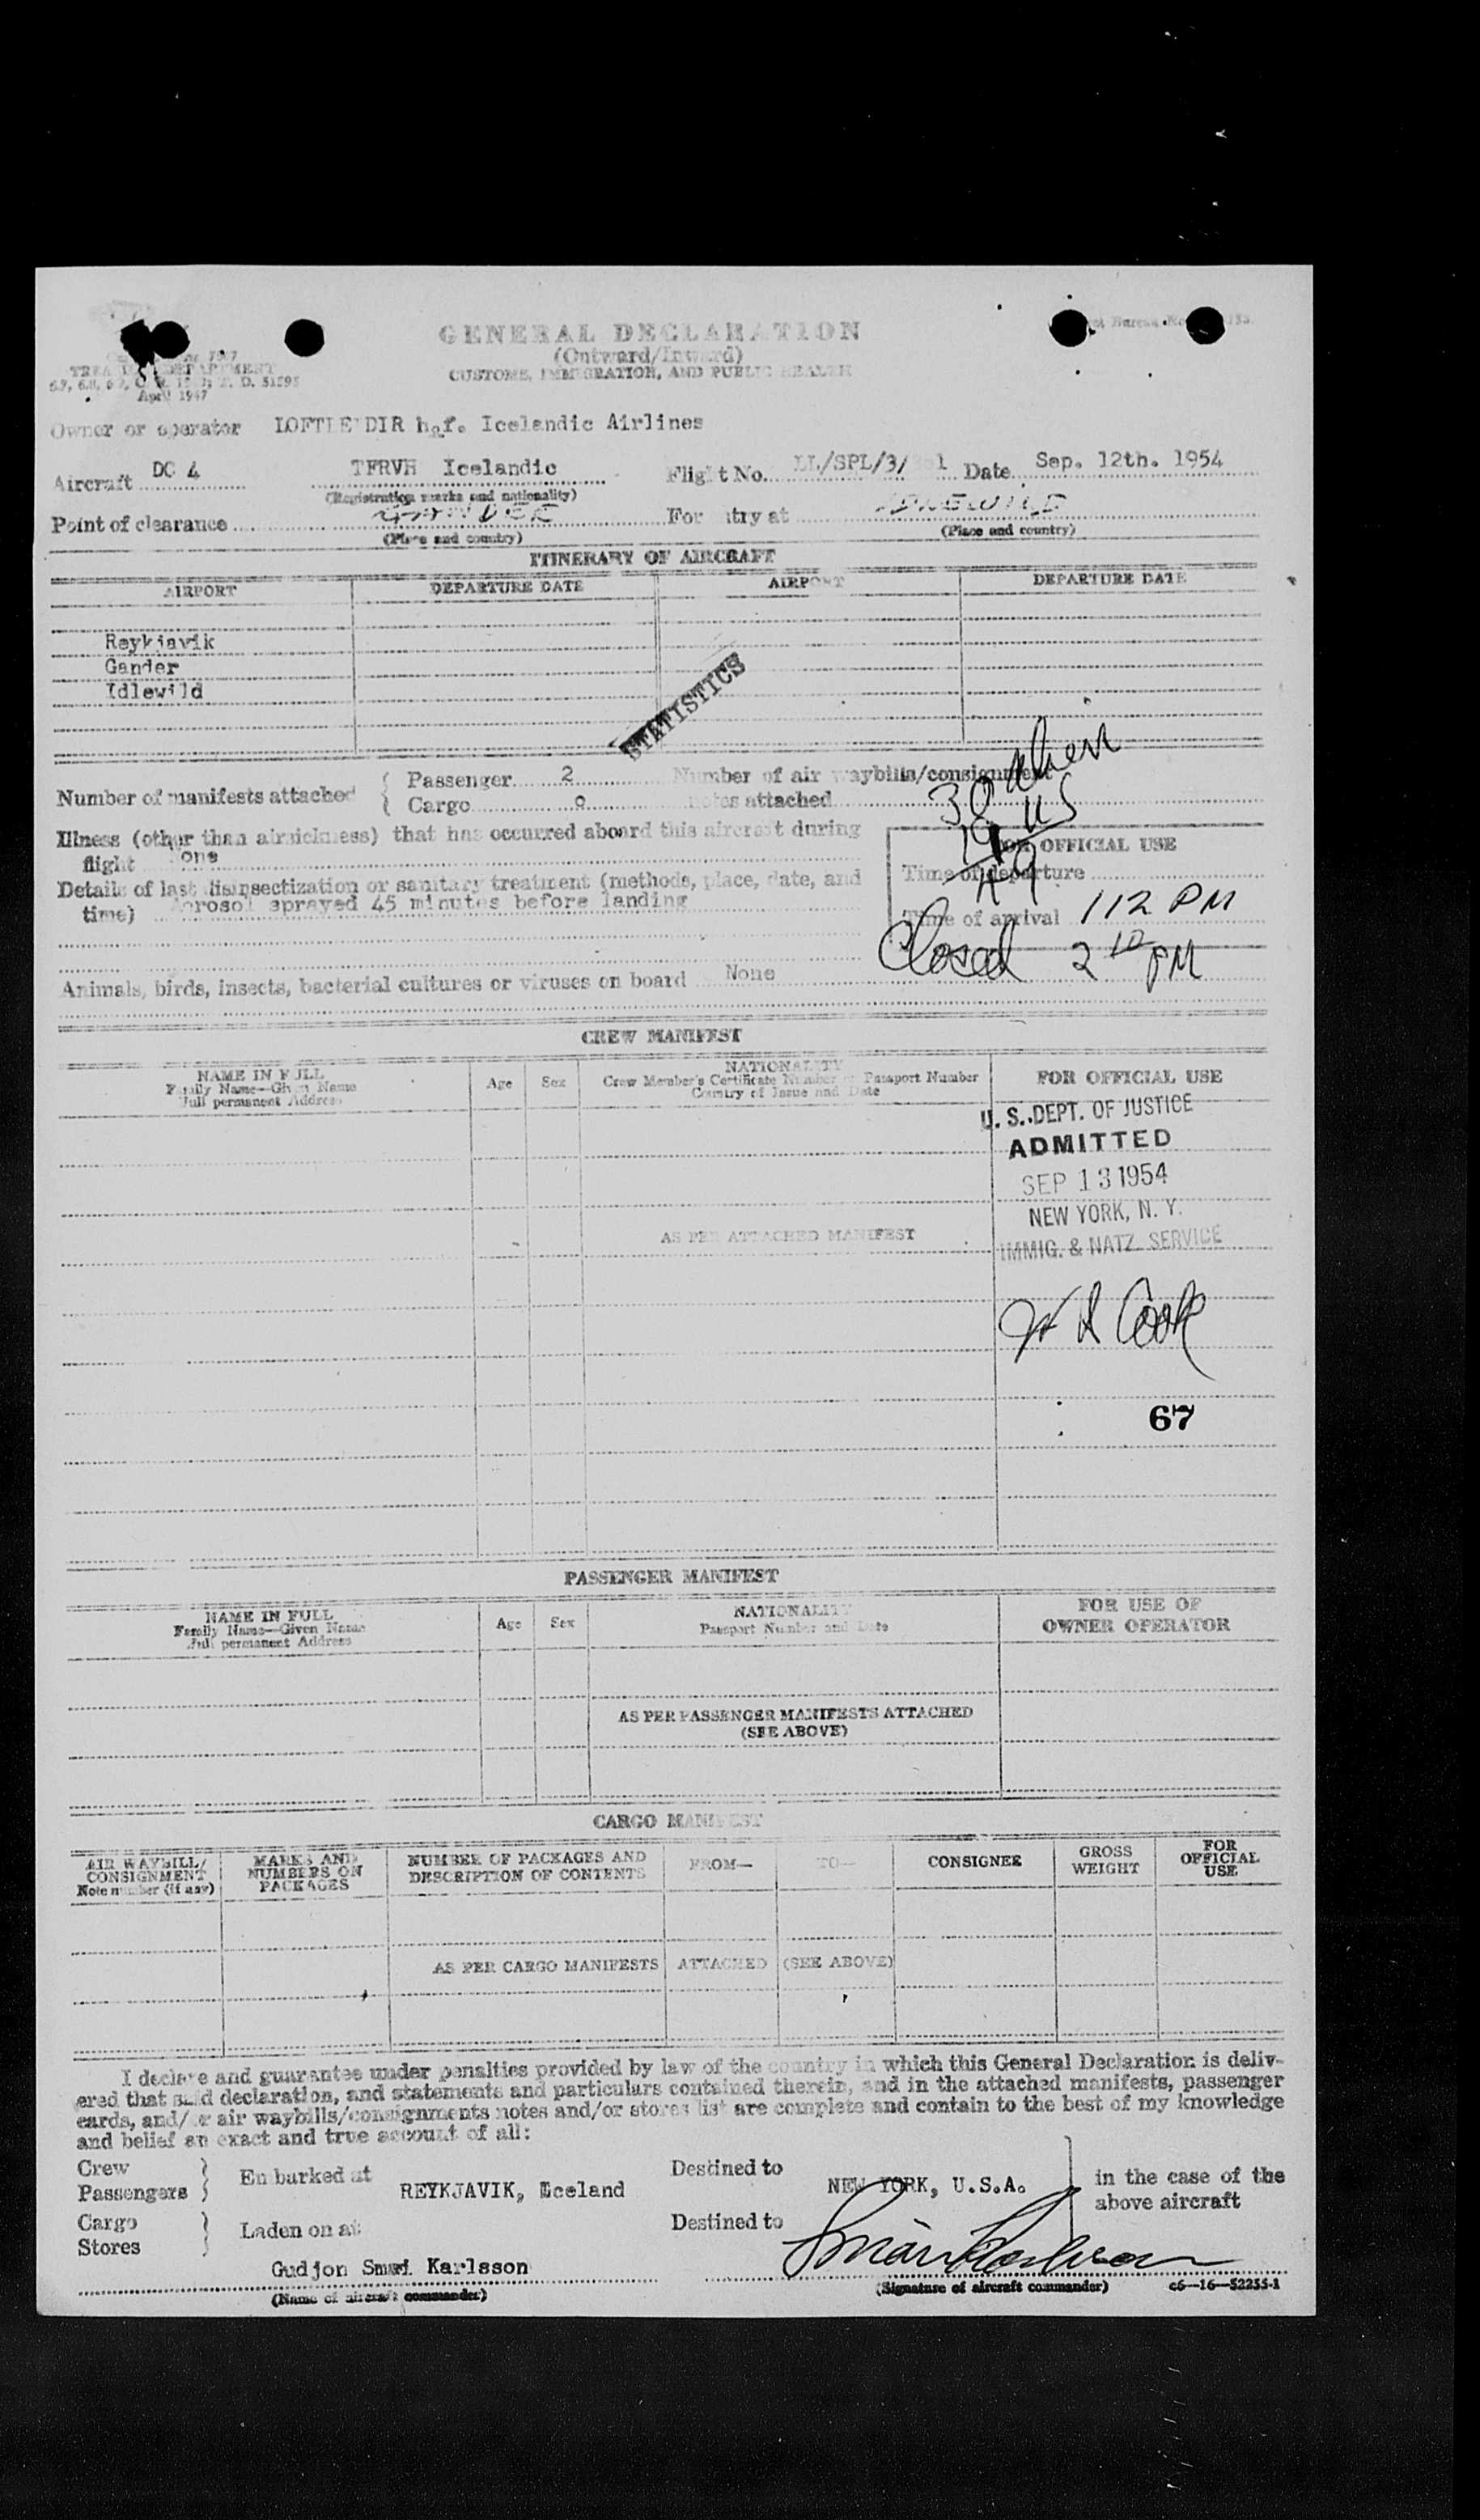 GENERAL DECLARATION
(Outward/Inward)
CUSTOMS, IMMIGRATION, AND PUBLIC HEALTH
TREASURY DEPARTMENT
April 1947
Owner or operator LOFTLEIDIR h.f. Icelandic Airlines
Aircraft DC 4 TFRVH Icelandic Flight No. LL/SPL/3/ 1 Date Sep. 12th. 1954
(Registration marks and nationality)
Point of clearance GANDER For entry at IDLEWILD
(Place and country) (Place and country)
ITINERARY OF AIRCRAFT
AIRPORT DEPARTURE DATE AIRPORT DEPARTURE DATE
Reykjavik
Gander
Idlewild
STATISTICS
Number of manifests attached { Passenger 2 Number of air waybills/consignment
{ Cargo o notes attached
30 alien
19 US
49
Illness (other than airsickness) that has occurred aboard this aircraft during
flight one
Details of last disinsectization or sanitary treatment (methods, place, date, and
time) Aerosol sprayed 45 minutes before landing
FOR OFFICIAL USE
Time of departure
Time of arrival 112 PM
Closed 2 10 PM
Animals, birds, insects, bacterial cultures or viruses on board None
CREW MANIFEST
NAME IN FULL
Family Name—Given Name
Full permanent Address
Age Sex
NATIONALITY
Crew Member's Certificate Number or Passport Number
Country of Issue and Date
FOR OFFICIAL USE
U. S. DEPT. OF JUSTICE
ADMITTED
SEP 13 1954
NEW YORK, N. Y.
IMMIG. & NATZ. SERVICE
AS PER ATTACHED MANIFEST
Cook
67
PASSENGER MANIFEST
NAME IN FULL
Family Name—Given Name
Full permanent Address
Age Sex
NATIONALITY
Passport Number and Date
FOR USE OF
OWNER OPERATOR
AS PER PASSENGER MANIFESTS ATTACHED
(SEE ABOVE)
CARGO MANIFEST
AIR WAYBILL/
CONSIGNMENT
Note number (if any)
MARKS AND
NUMBERS ON
PACKAGES
NUMBER OF PACKAGES AND
DESCRIPTION OF CONTENTS
FROM— TO— CONSIGNEE
GROSS
WEIGHT
FOR
OFFICIAL
USE
AS PER CARGO MANIFESTS ATTACHED (SEE ABOVE)
I declare and guarantee under penalties provided by law of the country in which this General Declaration is deliv-
ered that said declaration, and statements and particulars contained therein, and in the attached manifests, passenger
cards, and/or air waybills/consignments notes and/or stores list are complete and contain to the best of my knowledge
and belief an exact and true account of all:
Crew
Passengers } Embarked at REYKJAVIK, Iceland Destined to NEW YORK, U.S.A. in the case of the
above aircraft
Cargo
Stores } Laden on at Destined to
Gudjon Smari Karlsson
(Name of aircraft commander) (Signature of aircraft commander) c6—16—52255-1